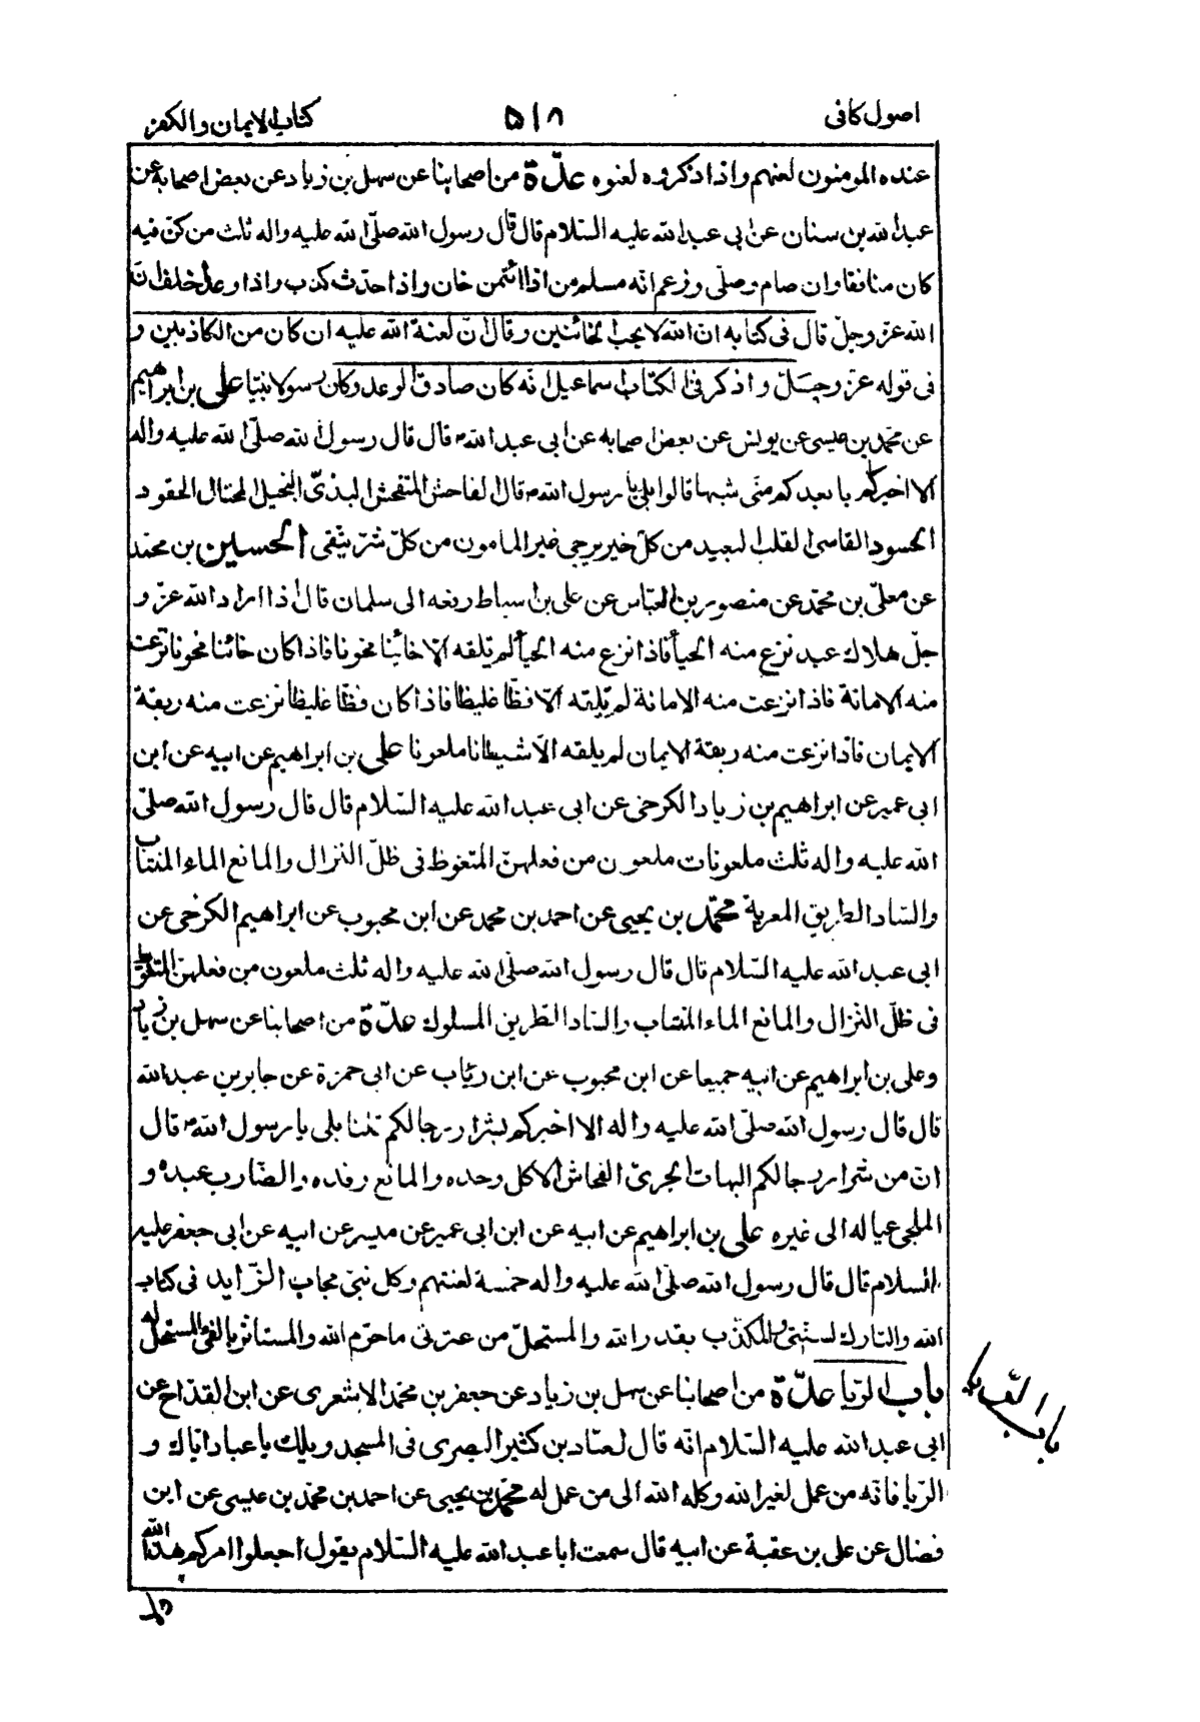 اصول كافى
٥١٨
كتاب الايمان والكفر
عنده المومنون لعنهم واذا ذكروه لعنوه عدّة من اصحابنا عن سهل بن زياد عن بعض اصحابه عن
عبد الله بن سنان عن ابى عبد الله عليه السّلام قال قال رسول الله صلّى الله عليه واله ثلث من كنّ فيه
كان منافقا وان صام وصلّى وزعم انّه مسلم من اذا ائتمن خان واذا حدّث كذب واذا وعد اخلف انّ
الله عزّ وجلّ قال فى كتابه انّ الله لا يحب الخائنين وقال انّ لعنة الله عليه ان كان من الكاذبين و
فى قوله عزّ وجلّ واذكر فى الكتاب اسماعيل انّه كان صادق الوعد وكان رسولا نبيّا على بن ابراهيم
عن محمّد بن عيسى عن يونس عن بعض اصحابه عن ابى عبد الله ع قال قال رسول الله صلّى الله عليه واله
الا اخبركم بابعدكم منّى شبها قالوا بلى يا رسول الله ص قال الفاحش المتفحش البذىّ البخيل المختال الحقود
الحسود القاسى القلب البعيد من كلّ خير يرجى غير المامون من كلّ شرّ يتّقى الحسين بن محمّد
عن معلّى بن محمّد عن منصور بن العبّاس عن على بن اسباط رفعه الى سلمان قال اذا اراد الله عزّ و
جلّ هلاك عبد نزع منه الحيأ فاذا نزع منه الحيأ لم تلقه الّا خائنا مخونا فاذا كان خائنا مخونا نزعت
منه الامانة فاذا نزعت منه الامانة لم تلقه الّا فظّا غليظا فاذا كان فظّا غليظا نزعت منه ربقة
الايمان فاذا نزعت منه ربقة الايمان لم يلقه الّا شيطانا ملعونا على بن ابراهيم عن ابيه عن ابن
ابى عمير عن ابراهيم بن زياد الكرخى عن ابى عبد الله عليه السّلام قال قال رسول الله صلّى
الله عليه واله ثلث ملعونات ملعون من فعلهنّ المتغوظ فى ظلّ النزال والمانع الماء المنتاب
والسّاد الطريق المعربة محمّد بن يحيى عن احمد بن محمد عن ابن محبوب عن ابراهيم الكرخى عن
ابى عبد الله عليه السّلام قال قال رسول الله صلّى الله عليه واله ثلث ملعون من فعلهن المتغوّط
فى ظلّ النّزال والمانع الماء المنتاب والسّاد الطّريق المسلوك عدّة من اصحابنا عن سهل بن زياد
وعلى بن ابراهيم عن ابيه جميعا عن ابن محبوب عن ابن رئاب عن ابى حمزة عن جابر بن عبد الله
قال قال رسول الله صلّى الله عليه واله الا اخبركم بشرار رجالكم قلنا بلى يا رسول الله ص قال
انّ من شرار رجالكم البهات الجرىّ الفحاش الاكل وحده والمانع رفده والضّارب عبده و
الملجى عياله الى غيره على بن ابراهيم عن ابيه عن ابن ابى عمير عن ميسر عن ابيه عن ابى جعفر عليه
السلام قال قال رسول الله صلّى الله عليه واله خمسة لعنتهم وكل نبىّ مجاب الزّايد فى كتاب
الله والتارك لسنّتى والمكذّب بقدر الله والمستحلّ من عترتى ما حرّم الله والمستاثر بالفئ المستحلّ له
باب الريا عدّة من اصحابنا عن سهل بن زياد عن جعفر بن محمّد الاشعرى عن ابن القدّاح عن
باب الريا
ابى عبد الله عليه السّلام انّه قال لعبّاد بن كثير البصرى فى المسجد ويلك يا عباد ايّاك و
الريا فانّه من عمل لغير الله وكله الله الى من عمل له محمّد بن يحيى عن احمد بن محمّد بن عيسى عن ابن
فضال عن على بن عقبة عن ابيه قال سمعت ابا عبد الله عليه السّلام يقول اجعلوا امركم هذا لله